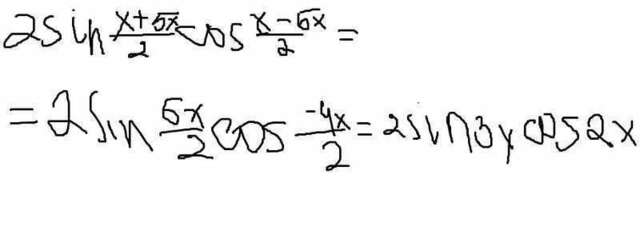 2sin \frac{x+5x}{2} cos \frac{x-5x}{2} =
= 2sin \frac{6x}{2} cos \frac{-4x}{2} = 2sin3x cos2x